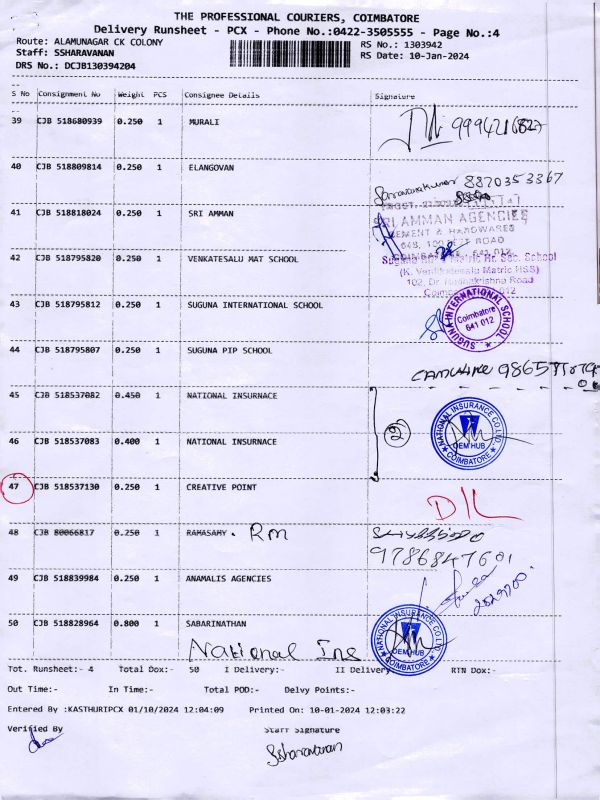 THE PROFESSIONAL COURIERS, COIMBATORE
Delivery Runsheet - PCX - Phone No.:0422-3505555 - Page No.:4
Route: ALAMUNAGAR CK COLONY RS No.: 1303942
Staff: SSHARAVANAN RS Date: 10-Jan-2024
DRS No.: DCJB130394204
S No Consignment No Weight PCS Consignee Details Signature
39 CJB 518680939 0.250 1 MURALI
40 CJB 518809814 0.250 1 ELANGOVAN
Saravanakumar 8870353367
41 CJB 518818024 0.250 1 SRI AMMAN
SRI AMMAN AGENCIES
CEMENT & HARDWARES
42 CJB 518795820 0.250 1 VENKATESALU MAT SCHOOL
(K. Venkatesalu Matric HSS)
43 CJB 518795812 0.250 1 SUGUNA INTERNATIONAL SCHOOL
SUGUNA INTERNATIONAL SCHOOL
Coimbatore
641 012
44 CJB 518795807 0.250 1 SUGUNA PIP SCHOOL
45 CJB 518537082 0.450 1 NATIONAL INSURNACE
2
NATIONAL INSURANCE CO. LTD.
OEM HUB
COIMBATORE
46 CJB 518537083 0.400 1 NATIONAL INSURNACE
47 CJB 518537130 0.250 1 CREATIVE POINT
D/L
48 CJB 80066817 0.250 1 RAMASAMY. Rm
9786847601
49 CJB 518839984 0.250 1 ANAMALIS AGENCIES
50 CJB 518828964 0.800 1 SABARINATHAN
National Ins
NATIONAL INSURANCE CO. LTD.
OEM HUB
COIMBATORE
Tot. Runsheet:- 4 Total Dox:- 50 I Delivery:- II Delivery RTN Dox:-
Out Time:- In Time:- Total POD:- Delvy Points:-
Entered By :KASTHURIPCX 01/10/2024 12:04:09 Printed On: 10-01-2024 12:03:22
Verified By Staff Signature
Ssharavanan